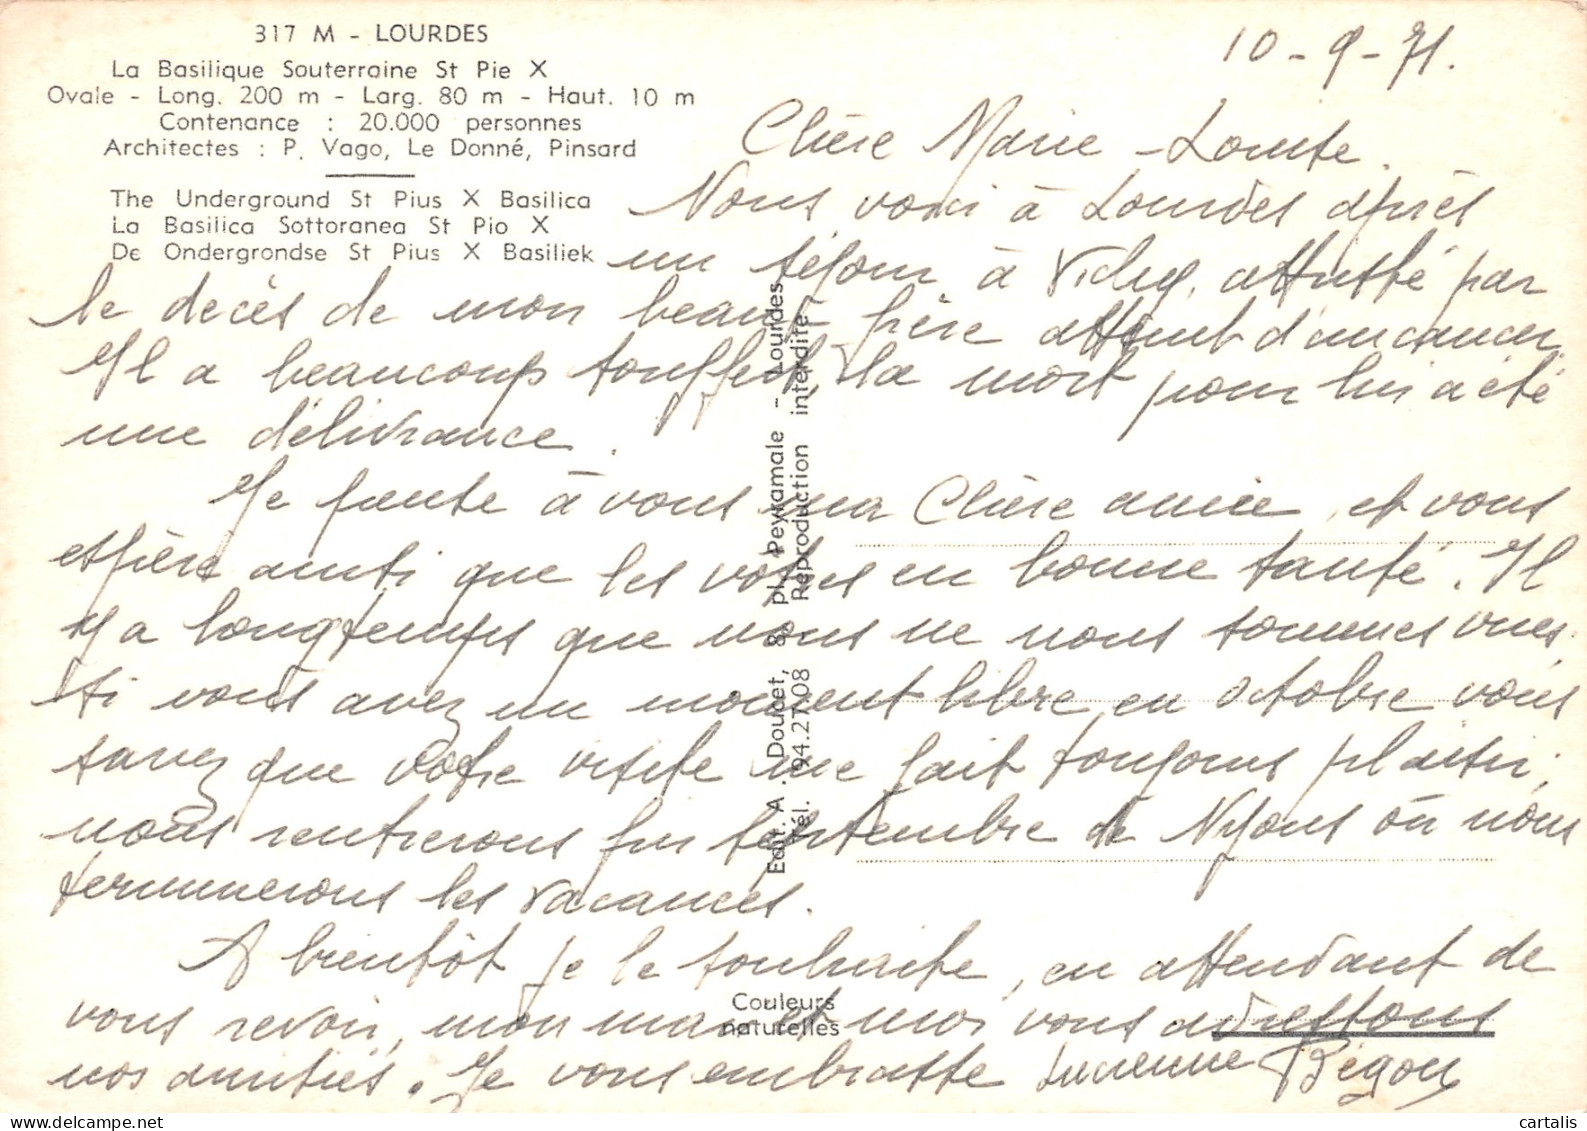 317 M - LOURDES
La Basilique Souterraine St Pie X
Ovale - Long. 200 m - Larg. 80 m - Haut. 10 m
Contenance : 20.000 personnes
Architectes : P. Vago, Le Donné, Pinsard
The Underground St Pius X Basilica
La Basilica Sottoranea St Pio X
De Ondergrondse St Pius X Basiliek
10-9-71.
Chère Marie-Louise.
Nous voici à Lourdes après
un séjour à Vichy, attristé par
le decès de mon beau frère atteint d'un cancer.
Il a beaucoup souffert, la mort pour lui a été
une délivrance.
Je pense à vous ma Chère amie, et vous
espère ainsi que les votres en bonne santé. Il
y a longtemps que nous ne nous sommes vues.
si vous avez un moment libre en octobre vous
savez que votre visite me fait toujours plaisir;
nous rentrerons fin septembre de Nyons où nous
terminerons les vacances.
A bientôt je le souhaite, en attendant de
vous revoir, mon mari et moi vous adressons
nos amitiés. Je vous embrasse Lucienne Bégou
Edit. A. Doucet, 8, pl. Peyramale - Lourdes
Tél. 94.27.08 Reproduction interdite
Couleurs
naturelles
cartalis